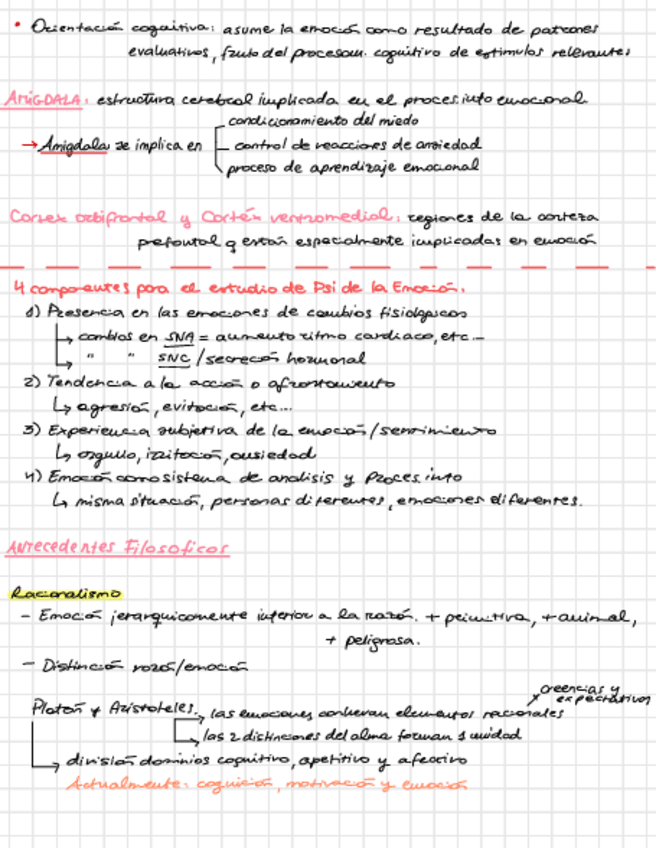 • Orientación cognitiva: asume la emoción como resultado de patrones
evaluativos, fruto del procesam. cognitivo de estímulos relevantes
AMIGDALA: estructura cerebral implicada en el proces.into emocional
condicionamiento del miedo
→ Amigdala se implica en – control de reacciones de ansiedad
proceso de aprendizaje emocional
Cortex orbifrontal y Cortéx ventromedial: regiones de la corteza
prefrontal q están especialmente implicadas en emoción
4 componentes para el estudio de Psi de la Emoción.
1) Presencia en las emociones de cambios fisiológicos
↳ cambios en SNA = aumento ritmo cardiaco, etc...
↳ " " SNC / secreción hormonal
2) Tendencia a la acción o afrontamiento
↳ agresión, evitación, etc...
3) Experiencia subjetiva de la emoción/sentimiento
↳ orgullo, irritación, ansiedad
4) Emoción como sistema de analisis y Proces.into
↳ misma situación, personas diferentes, emociones diferentes.
Antecedentes Filosoficos
Racionalismo
- Emoción jerarquicamente inferior a la razón. + primitiva, + animal,
+ peligrosa.
- Distinción razón/emoción
creencias y
expectativas
Platón y Aristoteles. → las emociones conllevan elementos racionales
↳ las 2 distinciones del alma forman 1 unidad
↳ división dominios cognitivo, apetitivo y afectivo
Actualmente: cognición, motivación y emoción